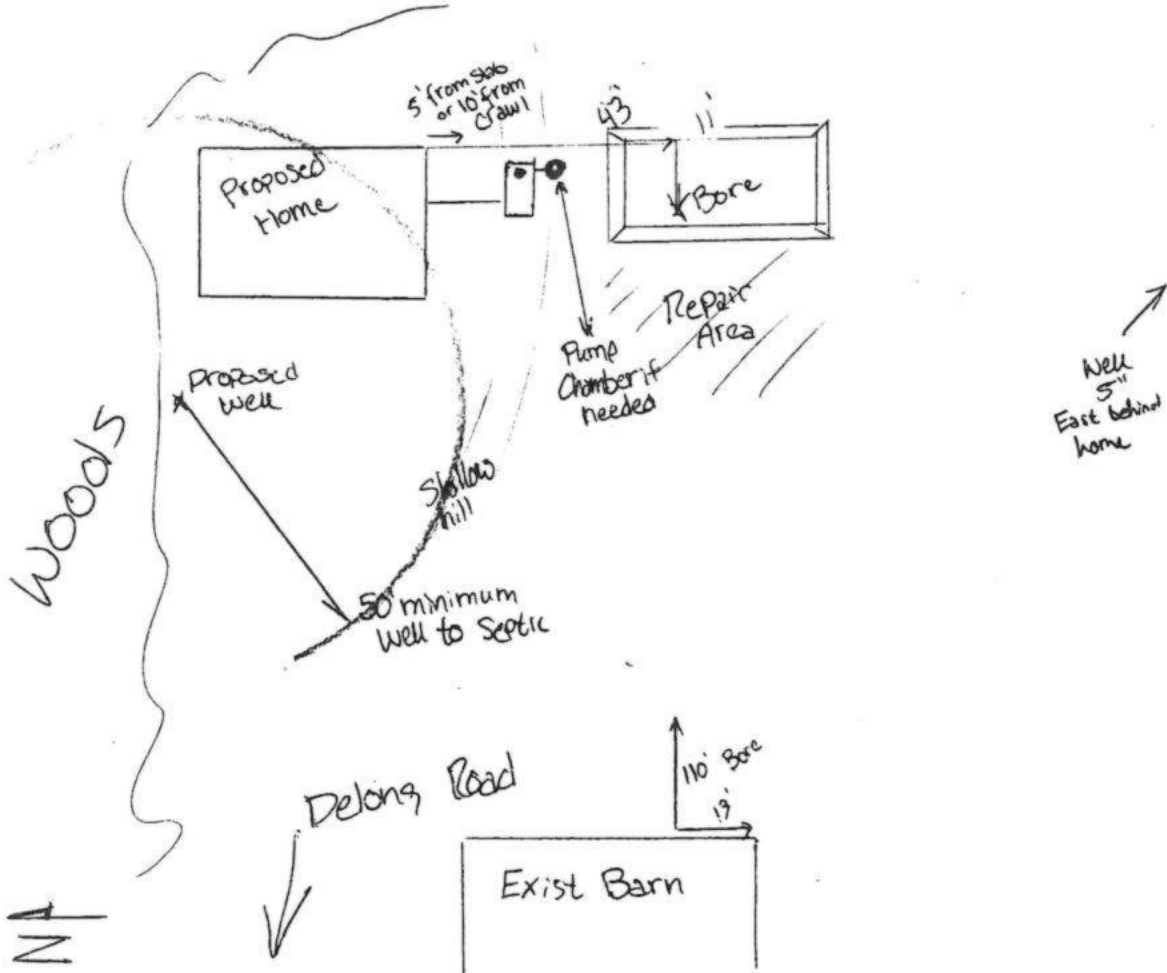 5' from Slab
or 10' from
Crawl
43'
11'
Proposed
Home
Bore
Repair
Area
Pump
Chamber if
needed
Well
5"
East behind
home
Proposed
Well
Woods
Shallow
hill
50' minimum
Well to Septic
Delong Road
110' Bore
13'
Exist Barn
N